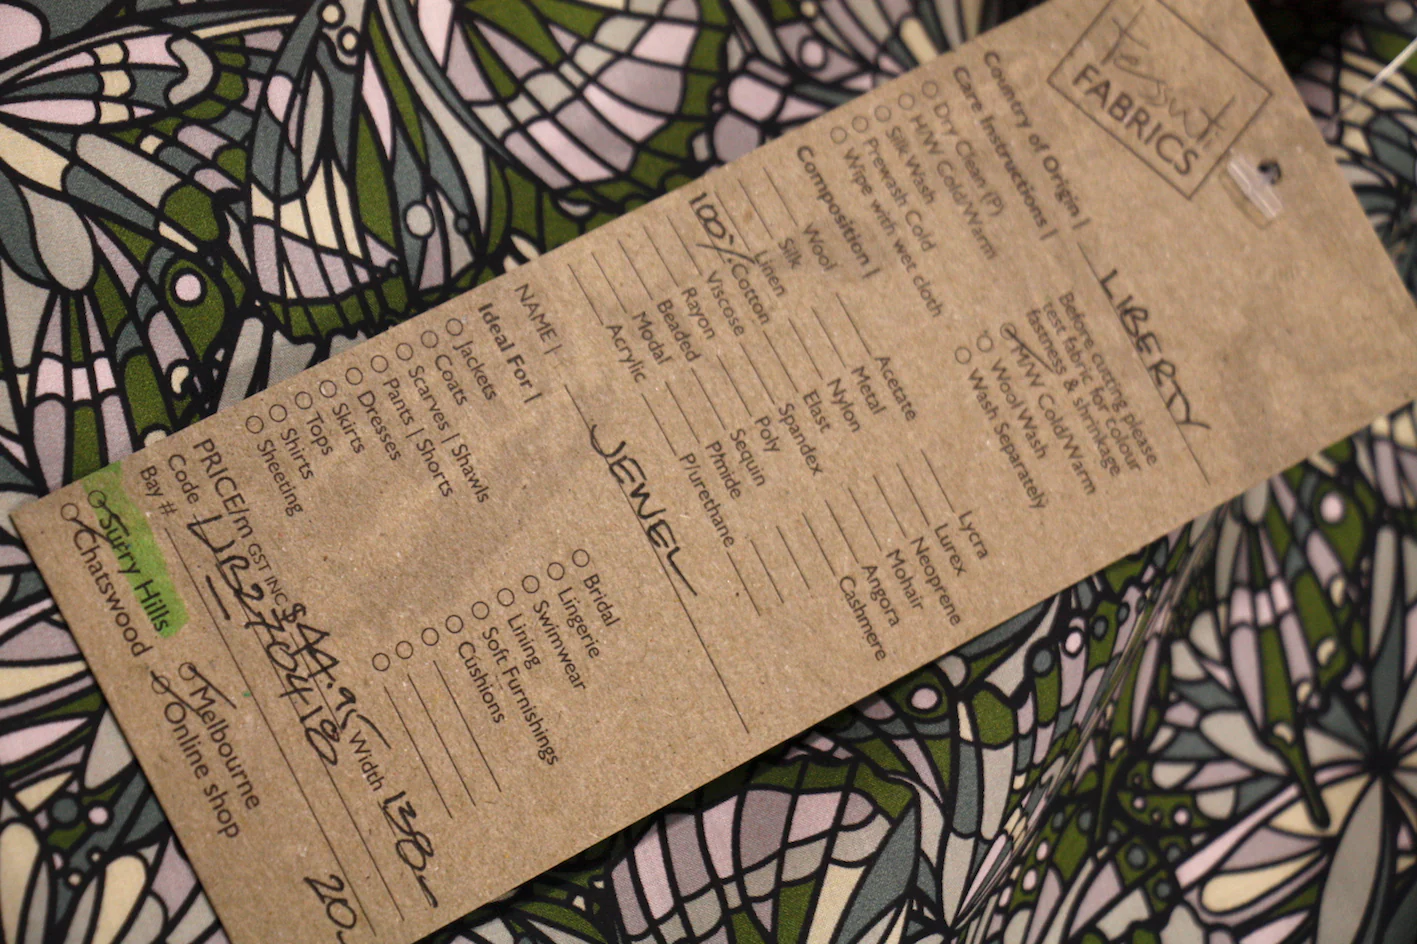 Tessuti
FABRICS
Country of Origin | LIBERTY
Care Instructions |
Before cutting please
test fabric for colour
fastness & shrinkage
Dry Clean (P)
H/W Cold/Warm
Silk Wash
Prewash Cold
Wipe with wet cloth
M/W Cold/Warm
Wool Wash
Wash Separately
Composition |
Wool
Silk
Linen
100% Cotton
Viscose
Rayon
Beaded
Modal
Acrylic
Acetate
Metal
Nylon
Elast
Spandex
Poly
Sequin
P/mide
P/urethane
Lycra
Lurex
Neoprene
Mohair
Angora
Cashmere
NAME | JEWEL
Ideal For |
Jackets
Coats
Scarves | Shawls
Pants | Shorts
Dresses
Skirts
Tops
Shirts
Sheeting
Bridal
Lingerie
Swimwear
Lining
Soft Furnishings
Cushions
PRICE/m GST INC $44.95 Width 138
Code LIB2704180
Bay # 20
Surry Hills
Chatswood
Melbourne
Online shop